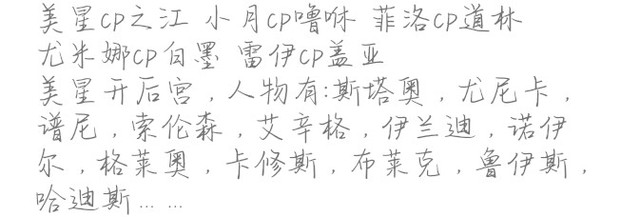 美星cp之江 小月cp噜咻 菲洛cp道林
尤米娜cp白墨 雷伊cp盖亚
美星开后宫,人物有:斯塔奥,尤尼卡,
谱尼,索伦森,艾辛格,伊兰迪,诺伊
尔,格莱奥,卡修斯,布莱克,鲁伊斯,
哈迪斯……